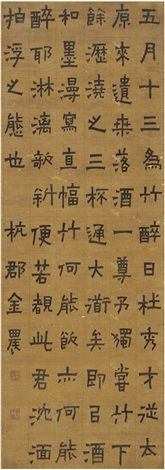 五月十三為竹醉日杜才從太
原來遺桒落酒一尊予獨嘗
餘瀝澆之三杯通大道矣即㠯酒
和墨漫寫直幅竹何能飲亦何能
醉耶淋漓欹斜便若覩此君沈湎
拍浮之態也 杭郡金農